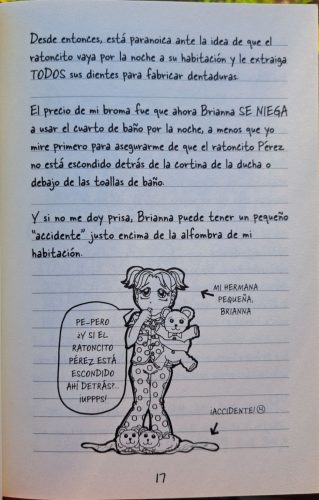 Desde entonces, está paranoica ante la idea de que el
ratoncito vaya por la noche a su habitación y le extraiga
TODOS sus dientes para fabricar dentaduras.
El precio de mi broma fue que ahora Brianna SE NIEGA
a usar el cuarto de baño por la noche, a menos que yo
mire primero para asegurarme de que el ratoncito Pérez
no está escondido detrás de la cortina de la ducha o
debajo de las toallas de baño.
Y si no me doy prisa, Brianna puede tener un pequeño
"accidente" justo encima de la alfombra de mi
habitación.
MI HERMANA
PEQUEÑA,
BRIANNA
PE-PERO
¿Y SI EL
RATONCITO
PÉREZ ESTÁ
ESCONDIDO
AHÍ DETRÁS?...
¡UPPPS!
¡ACCIDENTE! ☹
17